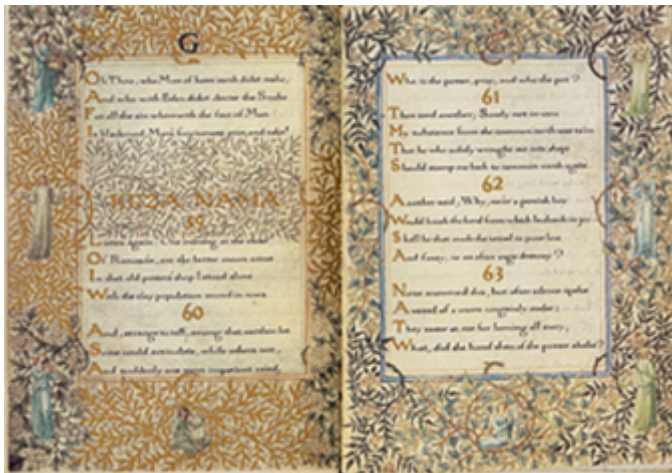 G
Oh, Thou, who Man of baser earth didst make,
And who with Eden didst devise the Snake
For all the sin wherewith the face of Man
Is blackened, Man's forgiveness give, and take!
KUZA NAMA
59
Listen again. One evening at the close
Of Ramazán, ere the better moon arose
In that old potter's shop I stood alone
With the clay population round in rows
60
And, strange to tell, among that earthen lot
Some could articulate, while others not,
And suddenly one more impatient cried,
Who is the potter, pray, and who the pot?
61
Then said another, Surely not in vain
My substance from the common earth was ta'en
That he who subtly wrought me into shape
Should stamp me back to common earth again
62
Another said, Why, ne'er a peevish boy
Would break the bowl from which he drank in joy
Shall he that made the vessel in pure love
And fancy, in an after rage destroy?
63
None answered this, but after silence spake
A vessel of a more ungainly make;
They sneer at me for leaning all awry;
What, did the hand then of the potter shake?